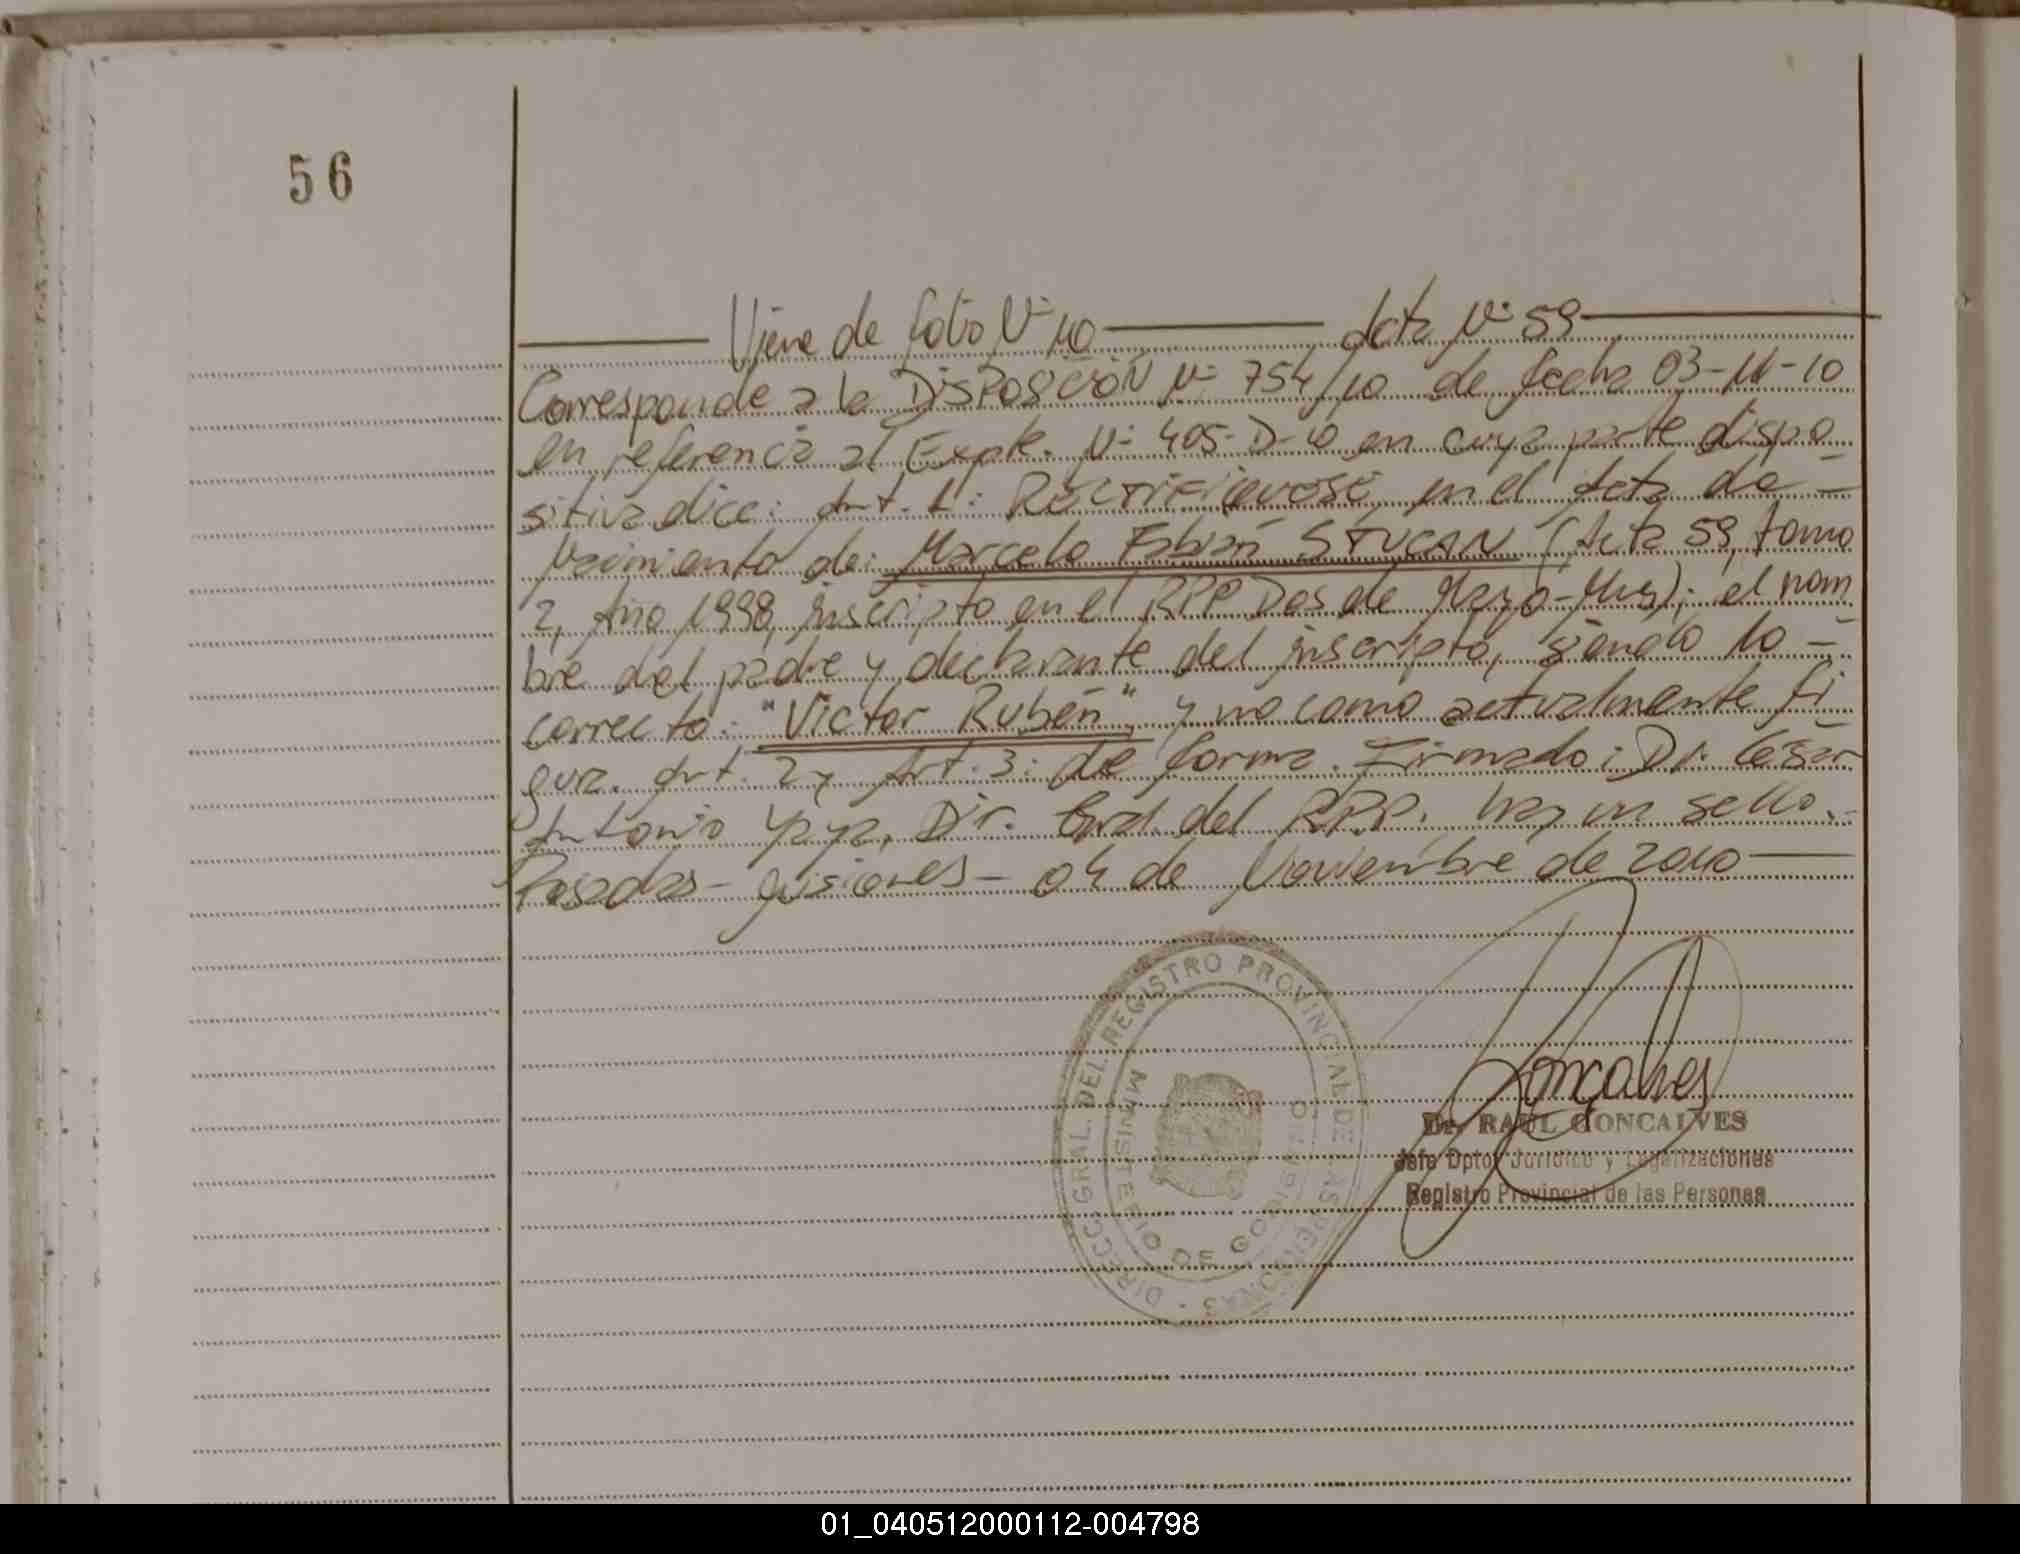 56
Viene de folio Nº 40 Acta Nº 59
Corresponde a la DISPOSICIÓN Nº 754/10 de fecha 03-11-10
en referencia al Expte. Nº 405-D-10 en cuya parte dispo
sitiva dice: Art. 1: Rectifíquese en el Acta de -
Nacimiento de: Marcelo Fabián STUCAN (Acta 59, tomo
2, Año 1998, inscripto en el RPP Dos de Mayo-Mnes); el nom
bre del padre y declarante del inscripto, siendo lo -
correcto: "Victor Rubén", y no como actualmente fi
gura. Art. 2 y Art. 3: de forma. Firmado: Dr. César
Antonio Yaya, Dir. Gral. del RPP. Hay un sello.-
Posadas - Misiones - 04 de Noviembre de 2010
DIRECC. GRAL. DEL REGISTRO PROVINCIAL DE LAS PERSONAS
MINISTERIO DE GOBIERNO
Goncalves
Dr. RAUL GONCALVES
Jefe Dpto. Jurídico y Legalizaciones
Registro Provincial de las Personas
01_040512000112-004798